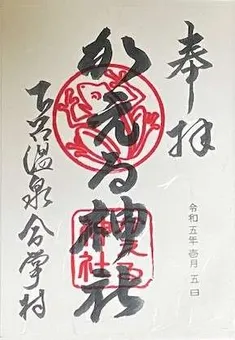 奉拝
令和五年壱月五日
かえる神社
下呂温泉合掌村